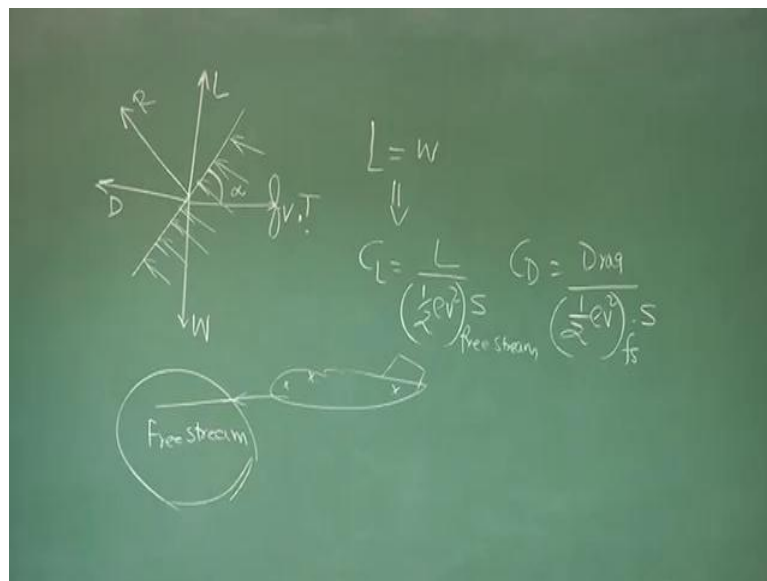 R
L
α
D
V, T
W
L = W
⇓
C_L = L / (1/2 ρv²)_free stream S
C_D = Drag / (1/2 ρv²)_fs . S
free stream